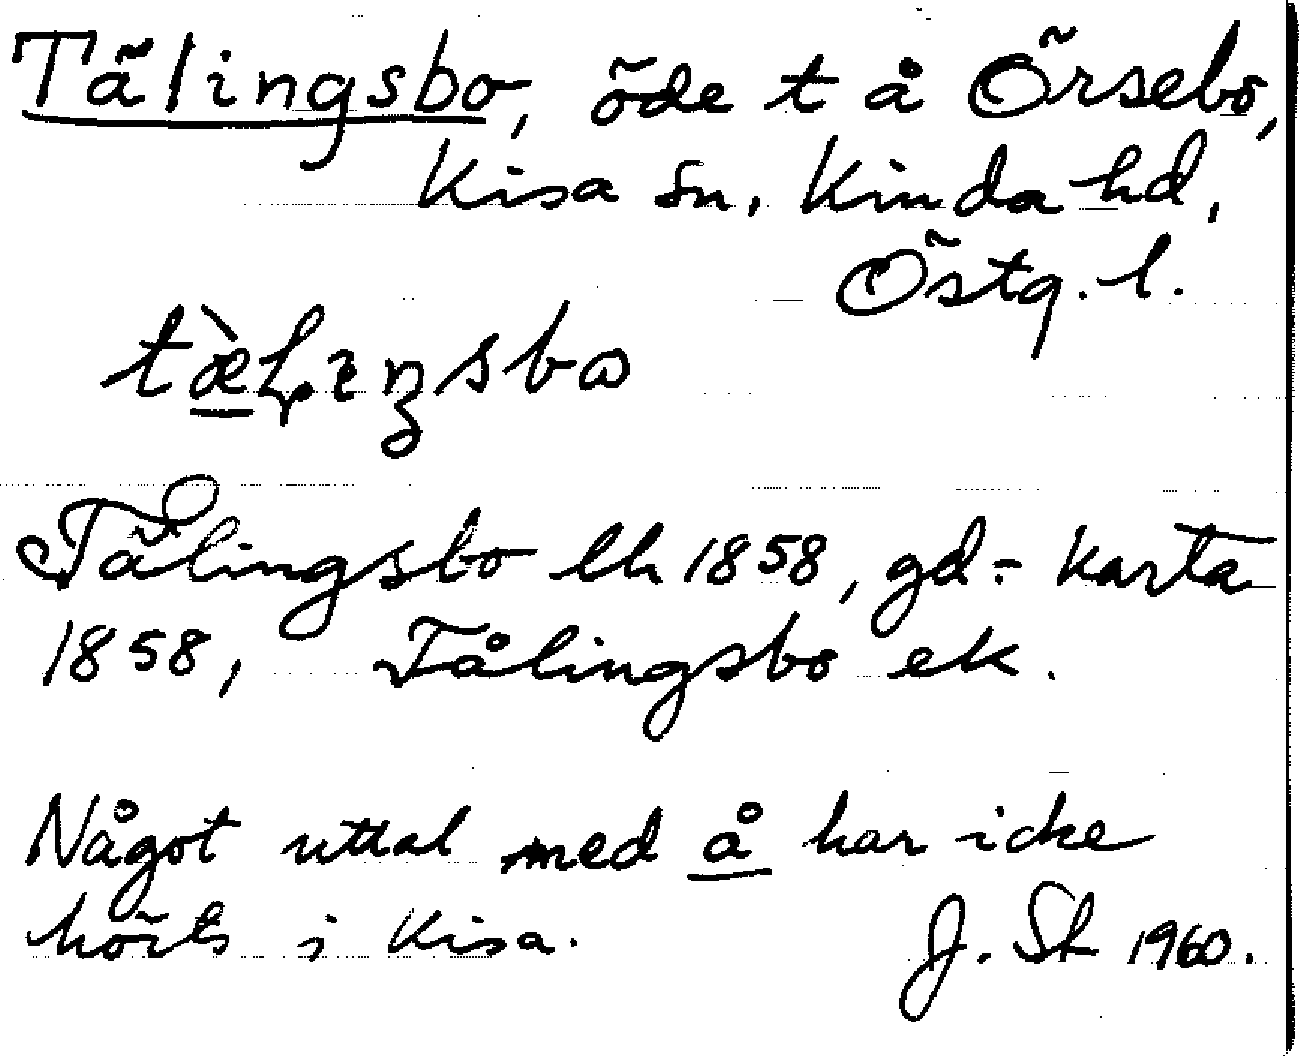 Tälingsbo, öde t å Örsebo,
Kisa sn, Kinda hd,
Östg. l.
Tälingsbo lh 1858, gd:- Karta
1858, Tålingsbo ek.
Något uttal med å har icke
hörts i Kisa. J. St 1960.